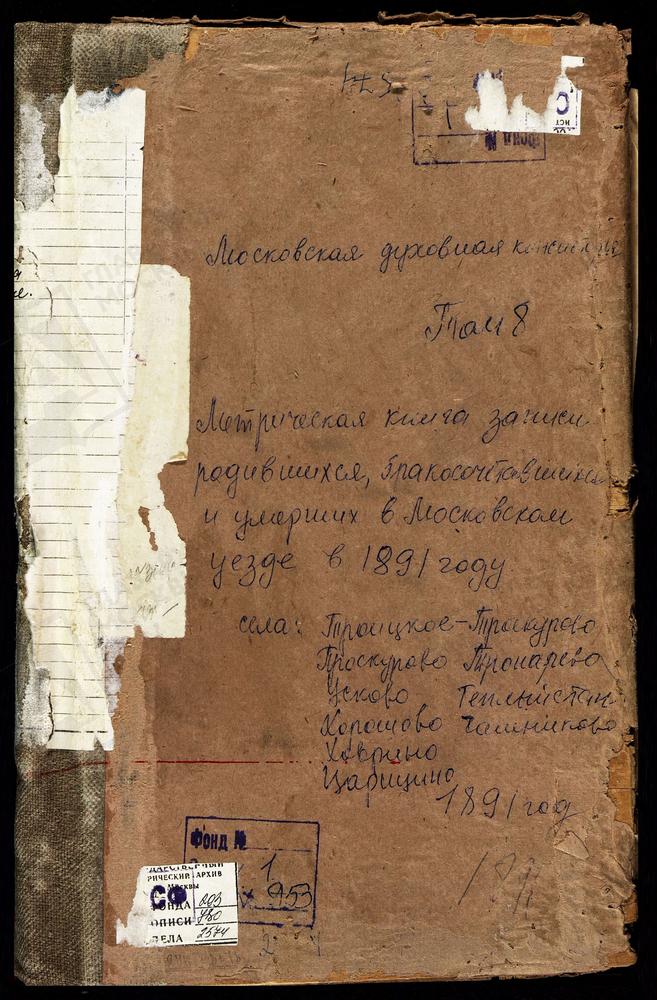 Московская духовная консистория
Том 8
Метрическая книга записи
родившихся, бракосочетавшихся
и умерших в Московском
уезде в 1891 году
села: Троицкое-Троекурово
Проскурово Тропарево
Усково Теплыйстан
Хорошово Чашниково
Ховрино
Царицино
1891 год
Фонд №
1
№ 953
РИЧЕСКИЙ АРХИВ
Москвы
СФ
ФОНДА 203
ОПИСИ 780
ДЕЛА 2574